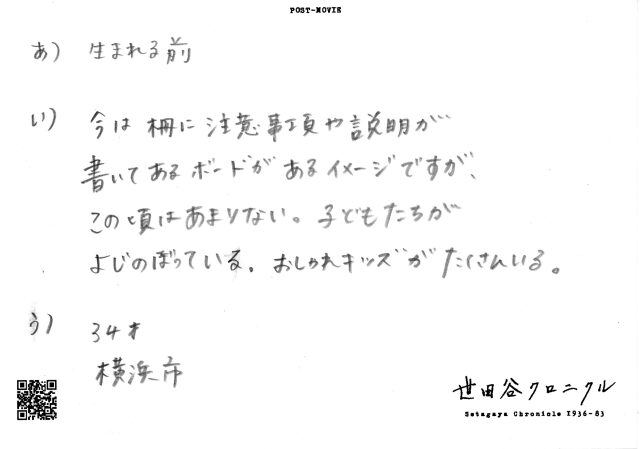 POST-MOVIE
あ) 生まれる前
い) 今は柵に注意事項や説明が
書いてあるボードがあるイメージですが、
この頃はあまりない。子どもたちが
よじのぼっている。おしゃれキッズがたくさんいる。
う) 34才
横浜市
世田谷クロニクル
Setagaya Chronicle 1936-83